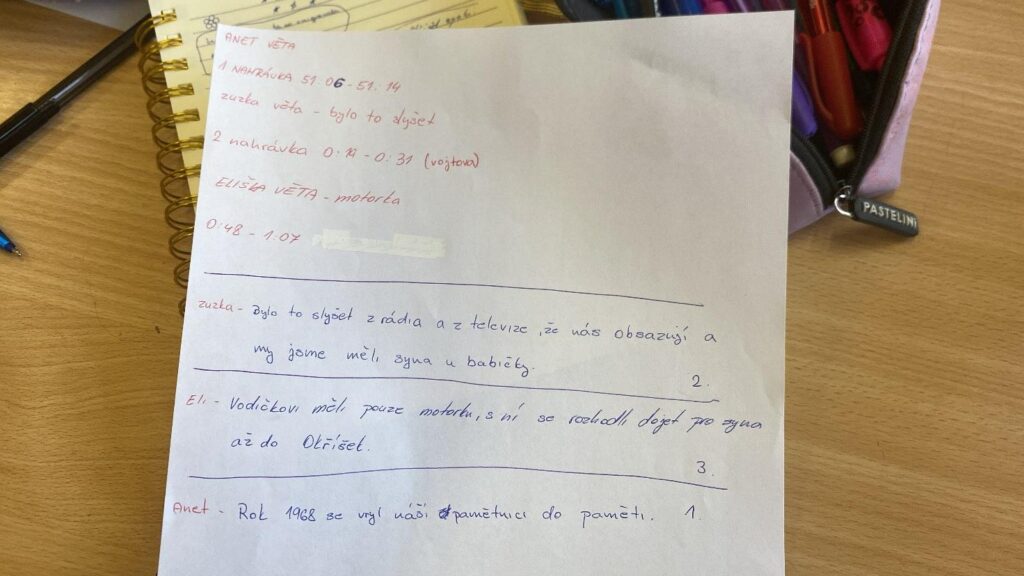 ANET VĚTA
1 NAHRÁVKA 51:06 - 51:14
zuzka věta - bylo to slyšet
2 nahrávka 0:19 - 0:31 (vojtova)
ELIŠKA VĚTA - motorka
0:48 - 1:07
zuzka - Bylo to slyšet z rádia a z televize, že nás obsazují a
my jsme měli syna u babičky.
2.
Eli - Vodičkovi měli pouze motorku, s ní se rozhodli dojet pro syna
až do Okříšek.
3.
Anet - Rok 1968 se vryl náší pamětnici do paměti. 1.
PASTELINI